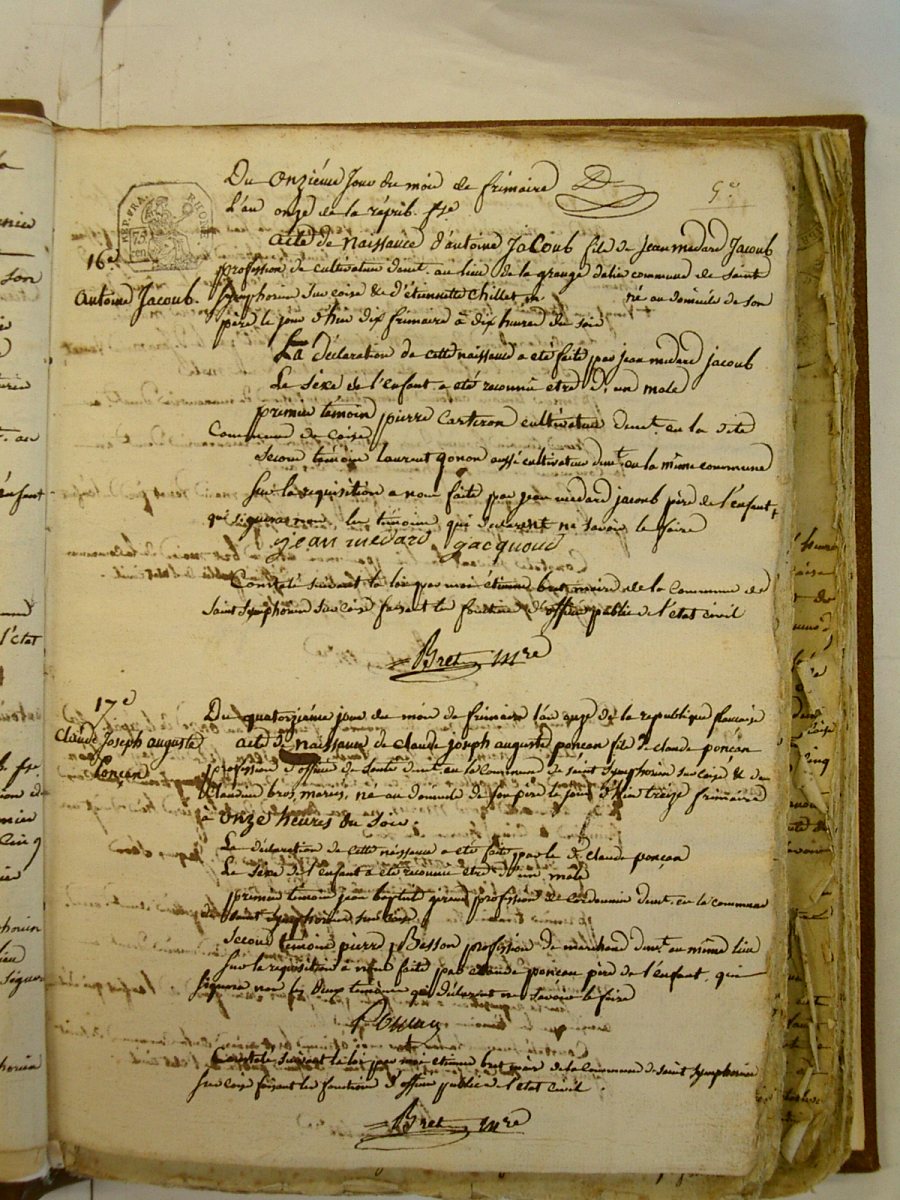 Du onzième Jour du mois de frimaire
L'an onze de la répub. fse
5e
REP. FRA. RHONE
75
16e
Antoine Jacoub.
acte de Naissance d'antoine Jacoub fils de Jean medard Jacoub
profession de cultivateur demt. au lieu de la grange commune de Saint
Symphorien sur coise & d'étiennette Chillet né au domicile de son
père le jour d'hier dix frimaire à dix heures du soir
La déclaration de cette naissance a eté faite par jean medard jacoub
Le séxe de l'enfant a eté reconnu etre d'un male
premier témoin pierre Carteron cultivateur demt. en la dite
Commune de Coise
second témoin laurent gonon aussi cultivateur demt. en la même commune
Sur la requisition a nous faite par jean medard jacoub père de l'enfant,
qui signera non les témoins qui declarent ne savoir le faire
jean medard jacquoud
Constaté suivant la loi par moi étienne bret maire de la Commune de
Saint Symphorien sur coise faisant les fonctions d'officier public de l'état civil
Bret mre
17e
Claude Joseph auguste
Ponçan
Du quatorzième jour du mois de frimaire l'an onze de la republique française
acte de naissance de claude joseph auguste ponçan fils de claude ponçan
profession d'officier de santé demt. en la Commune de saint Symphorien sur coise & de
Claudine bros, mariés, né au domicile de son père le jour d'hier treize frimaire
à onze heures du soir.
La declaration de cette naissance a eté faite par le d. claude ponçan
Le séxe de l'enfant a eté reconnu etre d'un male
premier témoin jean baptiste profession de cordonnier demt. en la commune
de saint Symphorien sur coise
Second témoin pierre Besson profession de marchand demt. au même lieu
Sur la requisition à nous faite par claude ponçan père de l'enfant, qui
signera non les deux temoins qui déclarent ne savoir le faire
Ponçan
Constaté suivant la loi par moi étienne bret maire de la Commune de saint Symphorien
sur coise faisant les fonctions d'officier public de l'état civil.
Bret mre